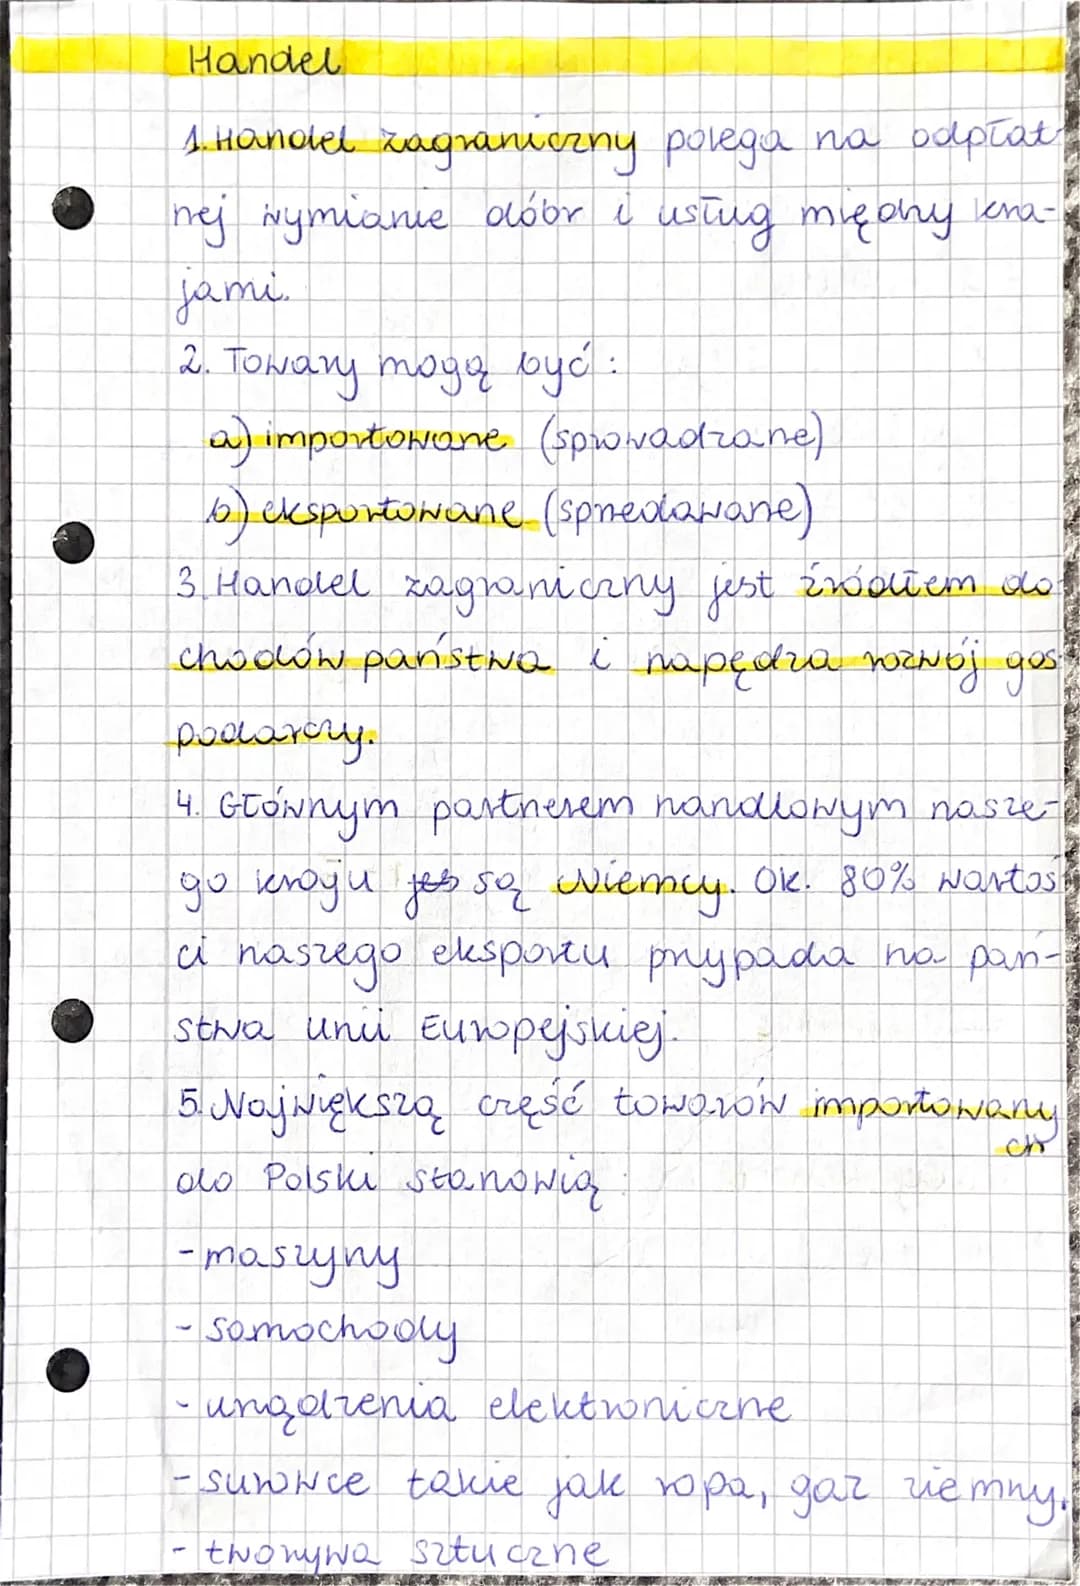 Handel
1. Handel zagraniczny polega na odpłat
nej wymianie dóbr i usług między kra-
jami.
2. Towary mogą być :
a) importowane (sprowadzane)
b) eksportowane (sprzedawane)
3. Handel zagraniczny jest źródłem do
chodów państwa i napędza rozwój gos
podarczy.
4. Głównym partnerem handlowym nasze-
go kraju jes są Niemcy. Ok. 80% wartoś
ci naszego eksportu przypada na pań-
stwa Unii Europejskiej.
5. Największą część towarów importowany
ch
do Polski stanowią :
- maszyny
- samochody
- urządzenia elektroniczne
- surowce takie jak ropa, gaz ziemny,
- tworzywa sztuczne